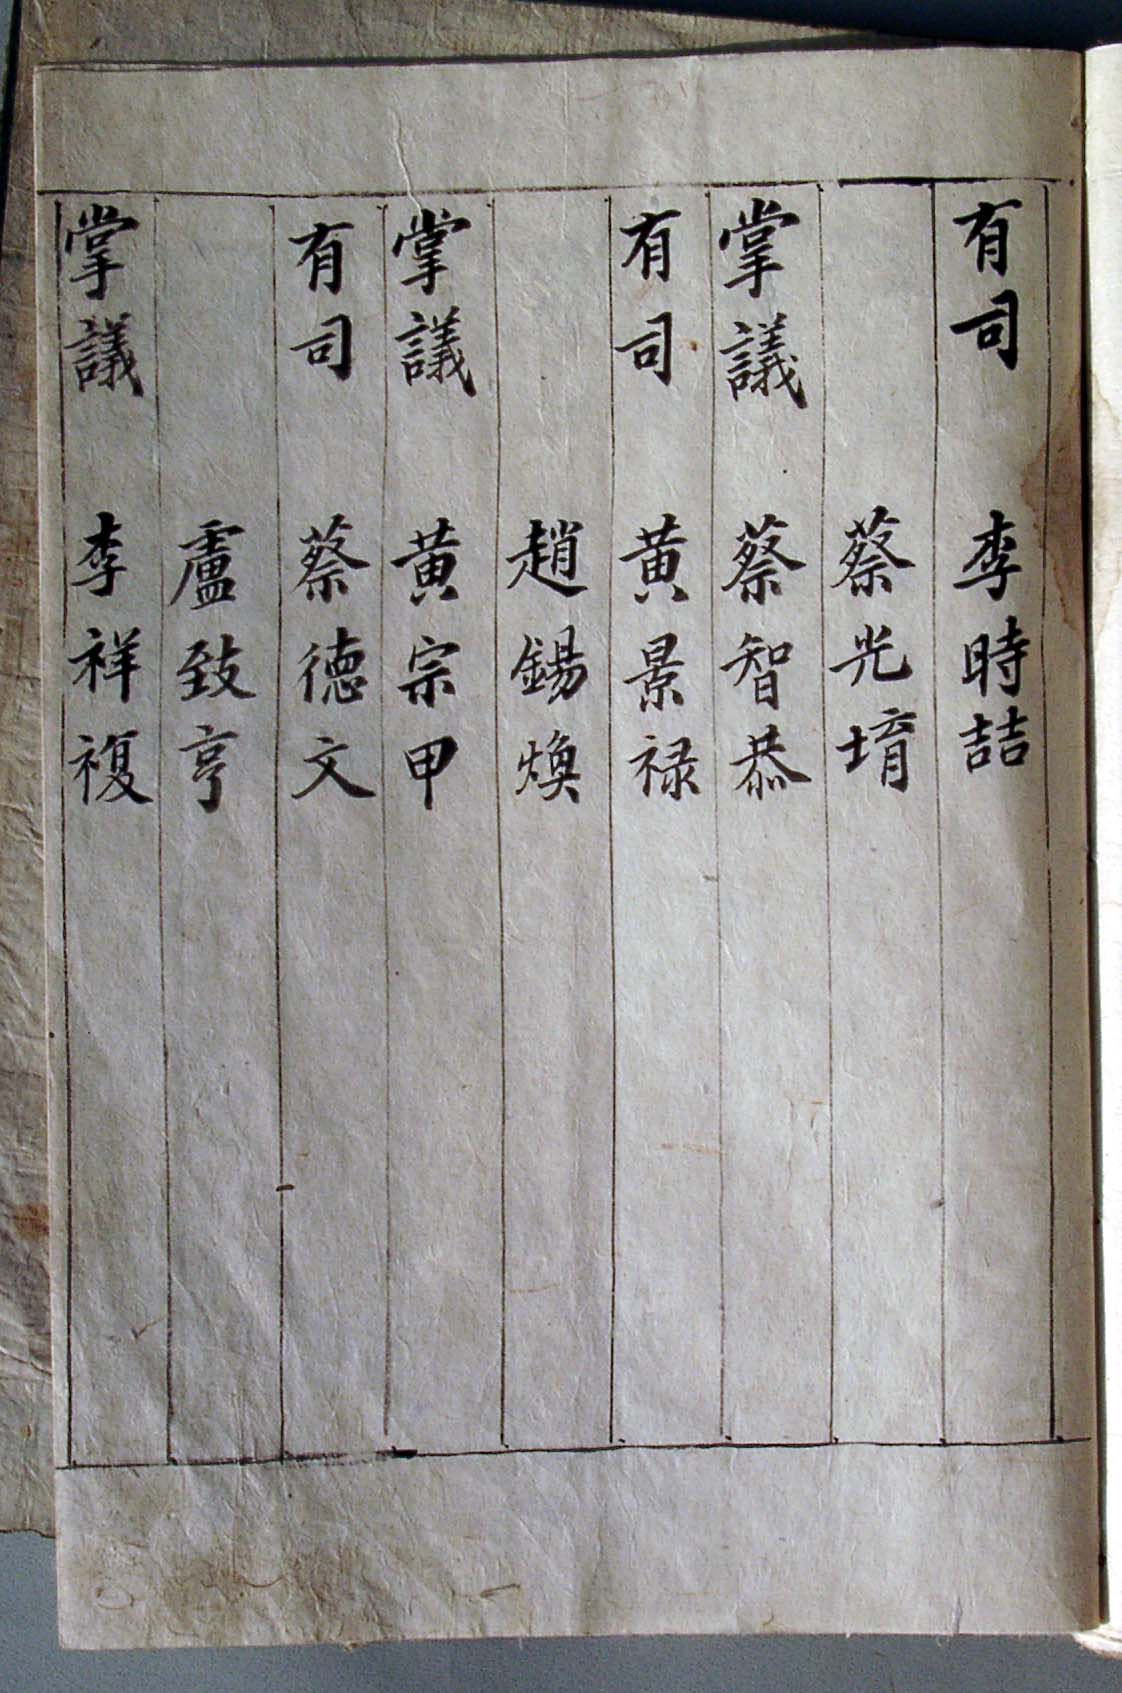 有司 李時喆
蔡光堉
掌議 蔡智恭
有司 黃景祿
趙錫煥
掌議 黃宗甲
有司 蔡德文
盧致亨
掌議 李祥複